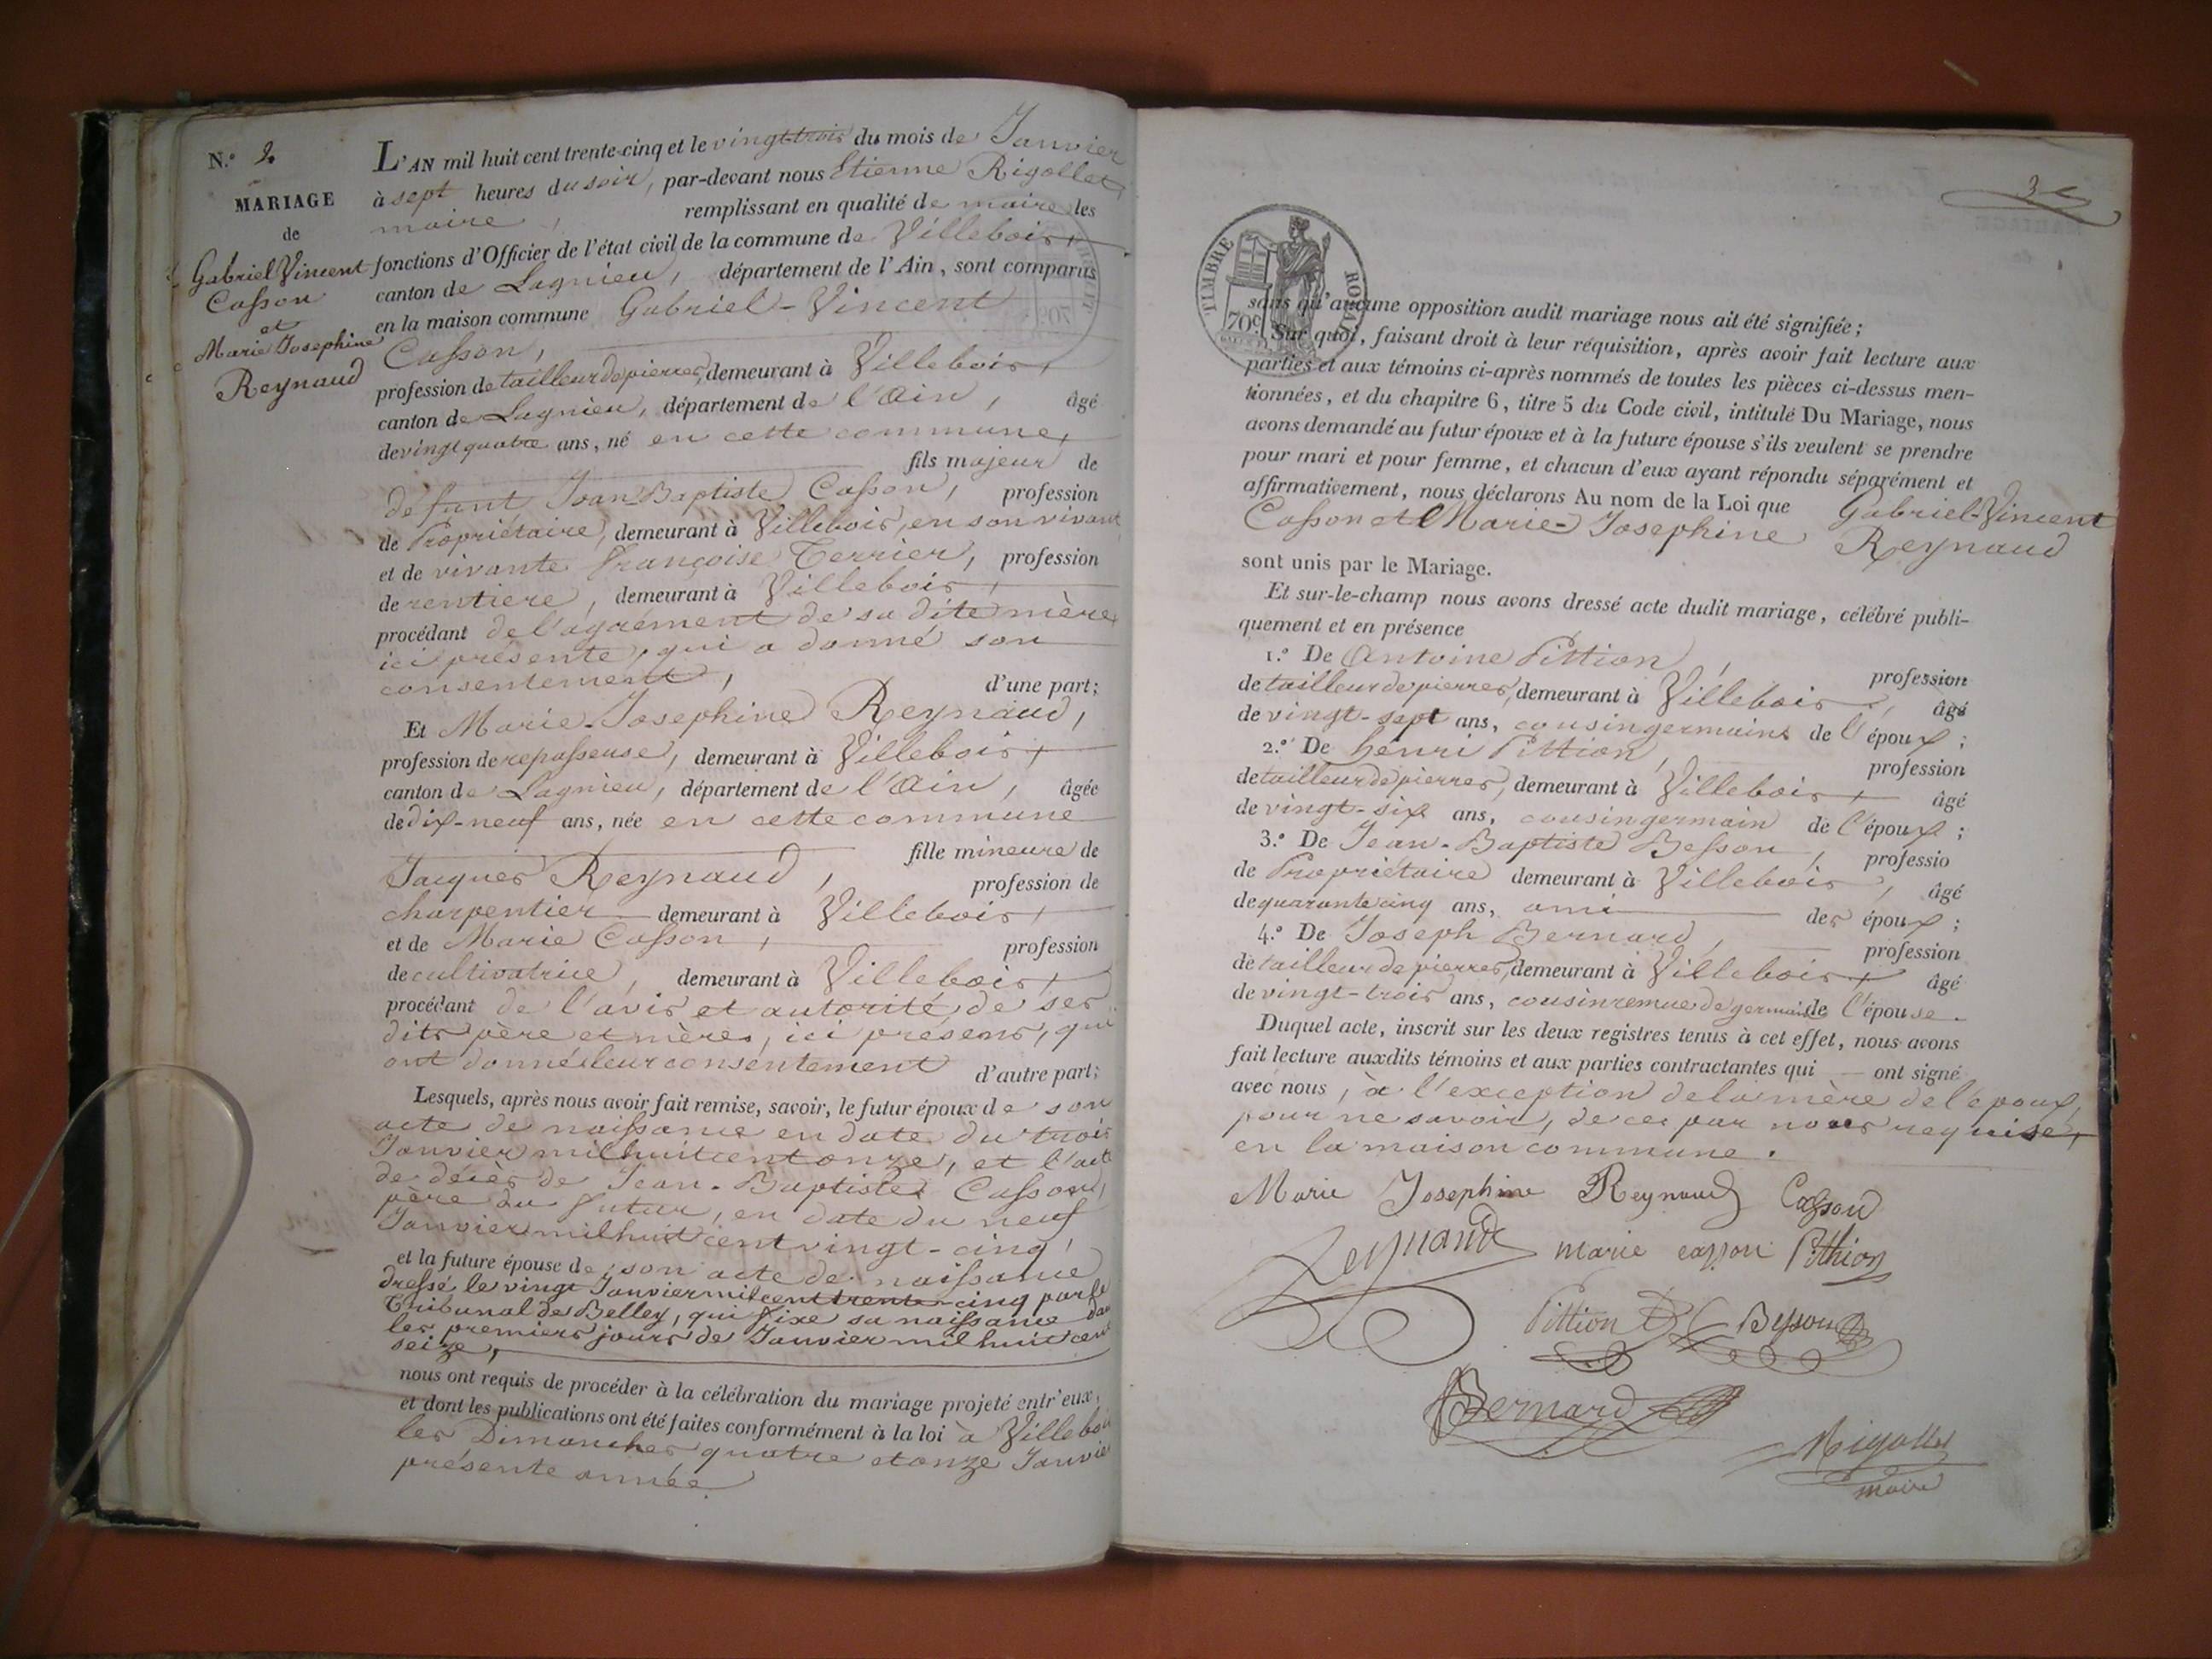 N.° 2.
MARIAGE
de
Gabriel Vincent
Casson
et
Marie Josephine
Reynaud
L'AN mil huit cent trente-cinq et le vingt-trois du mois de Janvier
à sept heures du soir, par-devant nous Etienne Rigollet,
maire, remplissant en qualité de maire les
fonctions d'Officier de l'état civil de la commune de Villebois,
canton de Lagnieu, département de l'Ain, sont comparus
en la maison commune Gabriel-Vincent
Casson,
profession de tailleur de pierres, demeurant à Villebois,
canton de Lagnieu, département de l'Ain, âgé
de vingt quatre ans, né en cette commune,
fils majeur de
défunt Jean Baptiste Casson, profession
de Propriétaire, demeurant à Villebois, en son vivant
et de vivante Françoise Terrier, profession
de rentiere, demeurant à Villebois,
procédant de l'agrément de sa dite mère,
ici présente, qui a donné son
consentement, d'une part;
Et Marie-Josephine Reynaud,
profession de repasseuse, demeurant à Villebois,
canton de Lagnieu, département de l'Ain, âgée
de dix-neuf ans, née en cette commune
fille mineure de
Jacques Reynaud, profession de
charpentier demeurant à Villebois,
et de Marie Casson, profession
de cultivatrice, demeurant à Villebois,
procédant de l'avis et autorité de ses
dits père et mère, ici présens, qui
ont donné leur consentement d'autre part;
Lesquels, après nous avoir fait remise, savoir, le futur époux de son
acte de naissance en date du trois
Janvier mil huit cent onze, et l'acte
de décès de Jean-Baptiste Casson,
père du futur, en date du neuf
Janvier mil huit cent vingt-cinq,
et la future épouse de son acte de naissance
dressé le vingt Janvier mil cent trente-cinq par le
Tribunal de Belley, qui fixe sa naissance dans
les premiers jours de Janvier mil huit cent
seize,
nous ont requis de procéder à la célébration du mariage projeté entr'eux,
et dont les publications ont été faites conformément à la loi à Villebois
les Dimanches quatre et onze Janvier
présente année
TIMBRE ROYAL
70c
sans qu'aucune opposition audit mariage nous ait été signifiée;
Sur quoi, faisant droit à leur réquisition, après avoir fait lecture aux
parties et aux témoins ci-après nommés de toutes les pièces ci-dessus men-
tionnées, et du chapitre 6, titre 5 du Code civil, intitulé Du Mariage, nous
avons demandé au futur époux et à la future épouse s'ils veulent se prendre
pour mari et pour femme, et chacun d'eux ayant répondu séparément et
affirmativement, nous déclarons Au nom de la Loi que Gabriel-Vincent
Casson et Marie-Josephine Reynaud
sont unis par le Mariage.
Et sur-le-champ nous avons dressé acte dudit mariage, célébré publi-
quement et en présence
1.° De Antoine Pittion, profession
de tailleur de pierres, demeurant à Villebois, âgé
de vingt-sept ans, cousin germains de l'époux;
2.° De henri Pittion, profession
de tailleur de pierres, demeurant à Villebois, âgé
de vingt-six ans, cousin germain de l'époux;
3.° De Jean-Baptiste Besson, professio
de Propriétaire demeurant à Villebois, âgé
de quarante cinq ans, ami des époux;
4.° De Joseph Bernard, profession
de tailleur de pierres, demeurant à Villebois, âgé
de vingt-trois ans, cousin remue de germain de l'épouse.
Duquel acte, inscrit sur les deux registres tenus à cet effet, nous avons
fait lecture auxdits témoins et aux parties contractantes qui ont signé
avec nous, à l'exception de la mère de l'époux,
pour ne savoir, de ce par nous requise,
en la maison commune.
Marie Josephine Reynaud Casson
Reynaud marie casson Pithion
Pittion Besson
Bernard
Rigollet
maire